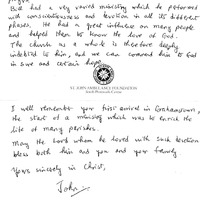 Bill had a very varied ministry which he performed
with conscientiousness and devotion in all its different
phases. He had a great influence on many people
and helped them to know the love of God.
The church as a whole is therefore deeply
indebted to him, and we can commend him to God
in sure and certain hope
ST. JOHN AMBULANCE FOUNDATION
I well remember your first arrival in Grahamstown,
the start of a ministry which was to enrich the
life of many parishes.
May the Lord whom he loved with such devotion
bless both him and you and your family
Yours sincerely in Christ,
John